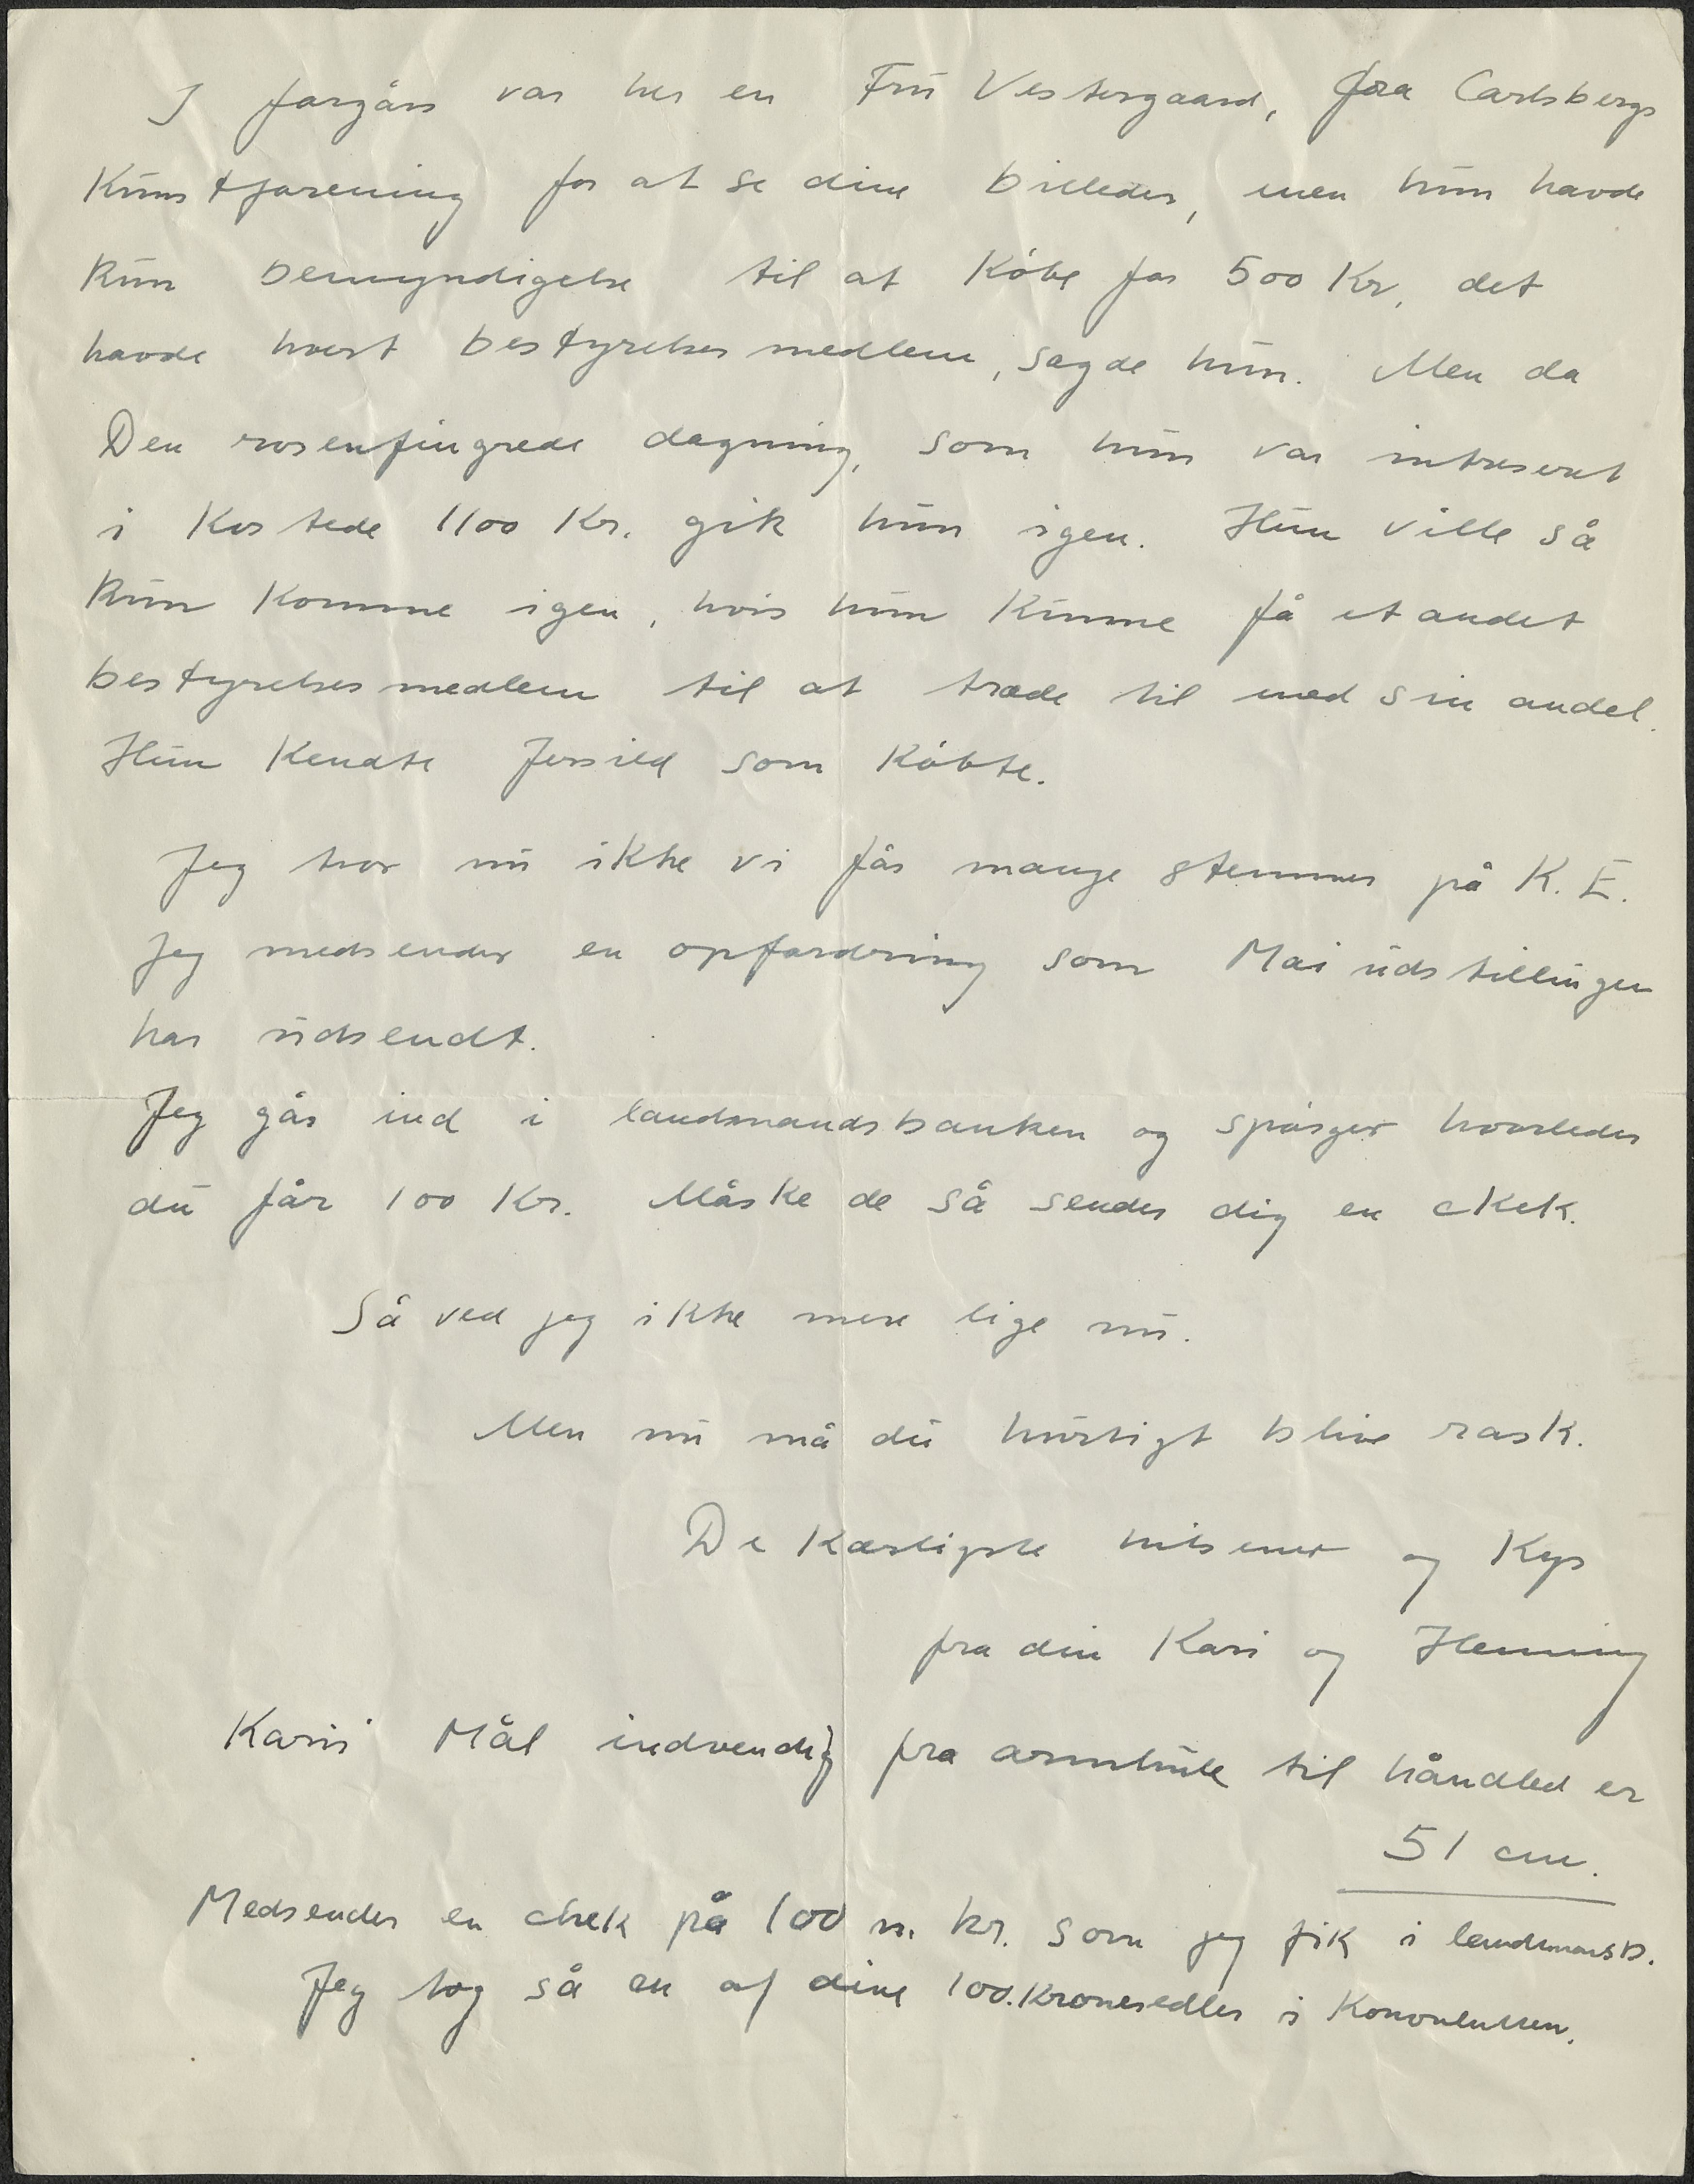 I forgårs var her en Fru Vestergaard, fra Carlsbergs
Kunstforening for at se dine billeder, men hun havde
kun bemyndigelse til at købe for 500 Kr, det
havde hvert bestyrelsesmedlem, sagde hun. Men da
Den rosenfingrede dagning, som hun var intreseret
i kostede 1100 Kr. gik hun igen. Hun ville så
kun komme igen, hvis hun kunne få et andet
bestyrelsesmedlem til at træde til med sin andel.
Hun kendte Jersild som købte.
Jeg tror nu ikke vi får mange stemmer på K. E.
Jeg medsender en opfordring som Mai udstillingen
har udsendt.
Jeg går ind i landmandsbanken og spørger hvorledes
du får 100 Kr. Måske de så sender dig en check.
Så ved jeg ikke mere lige nu.
Men nu må du hurtigt blive rask.
De kærligste hilsener og Kys
fra din Kari og Henning
Karis Mål indvendig fra armhule til håndled er
51 cm.
Medsender en chek på 100 n. kr. som jeg fik i landmansb.
Jeg tog så en af dine 100.kronesedler i